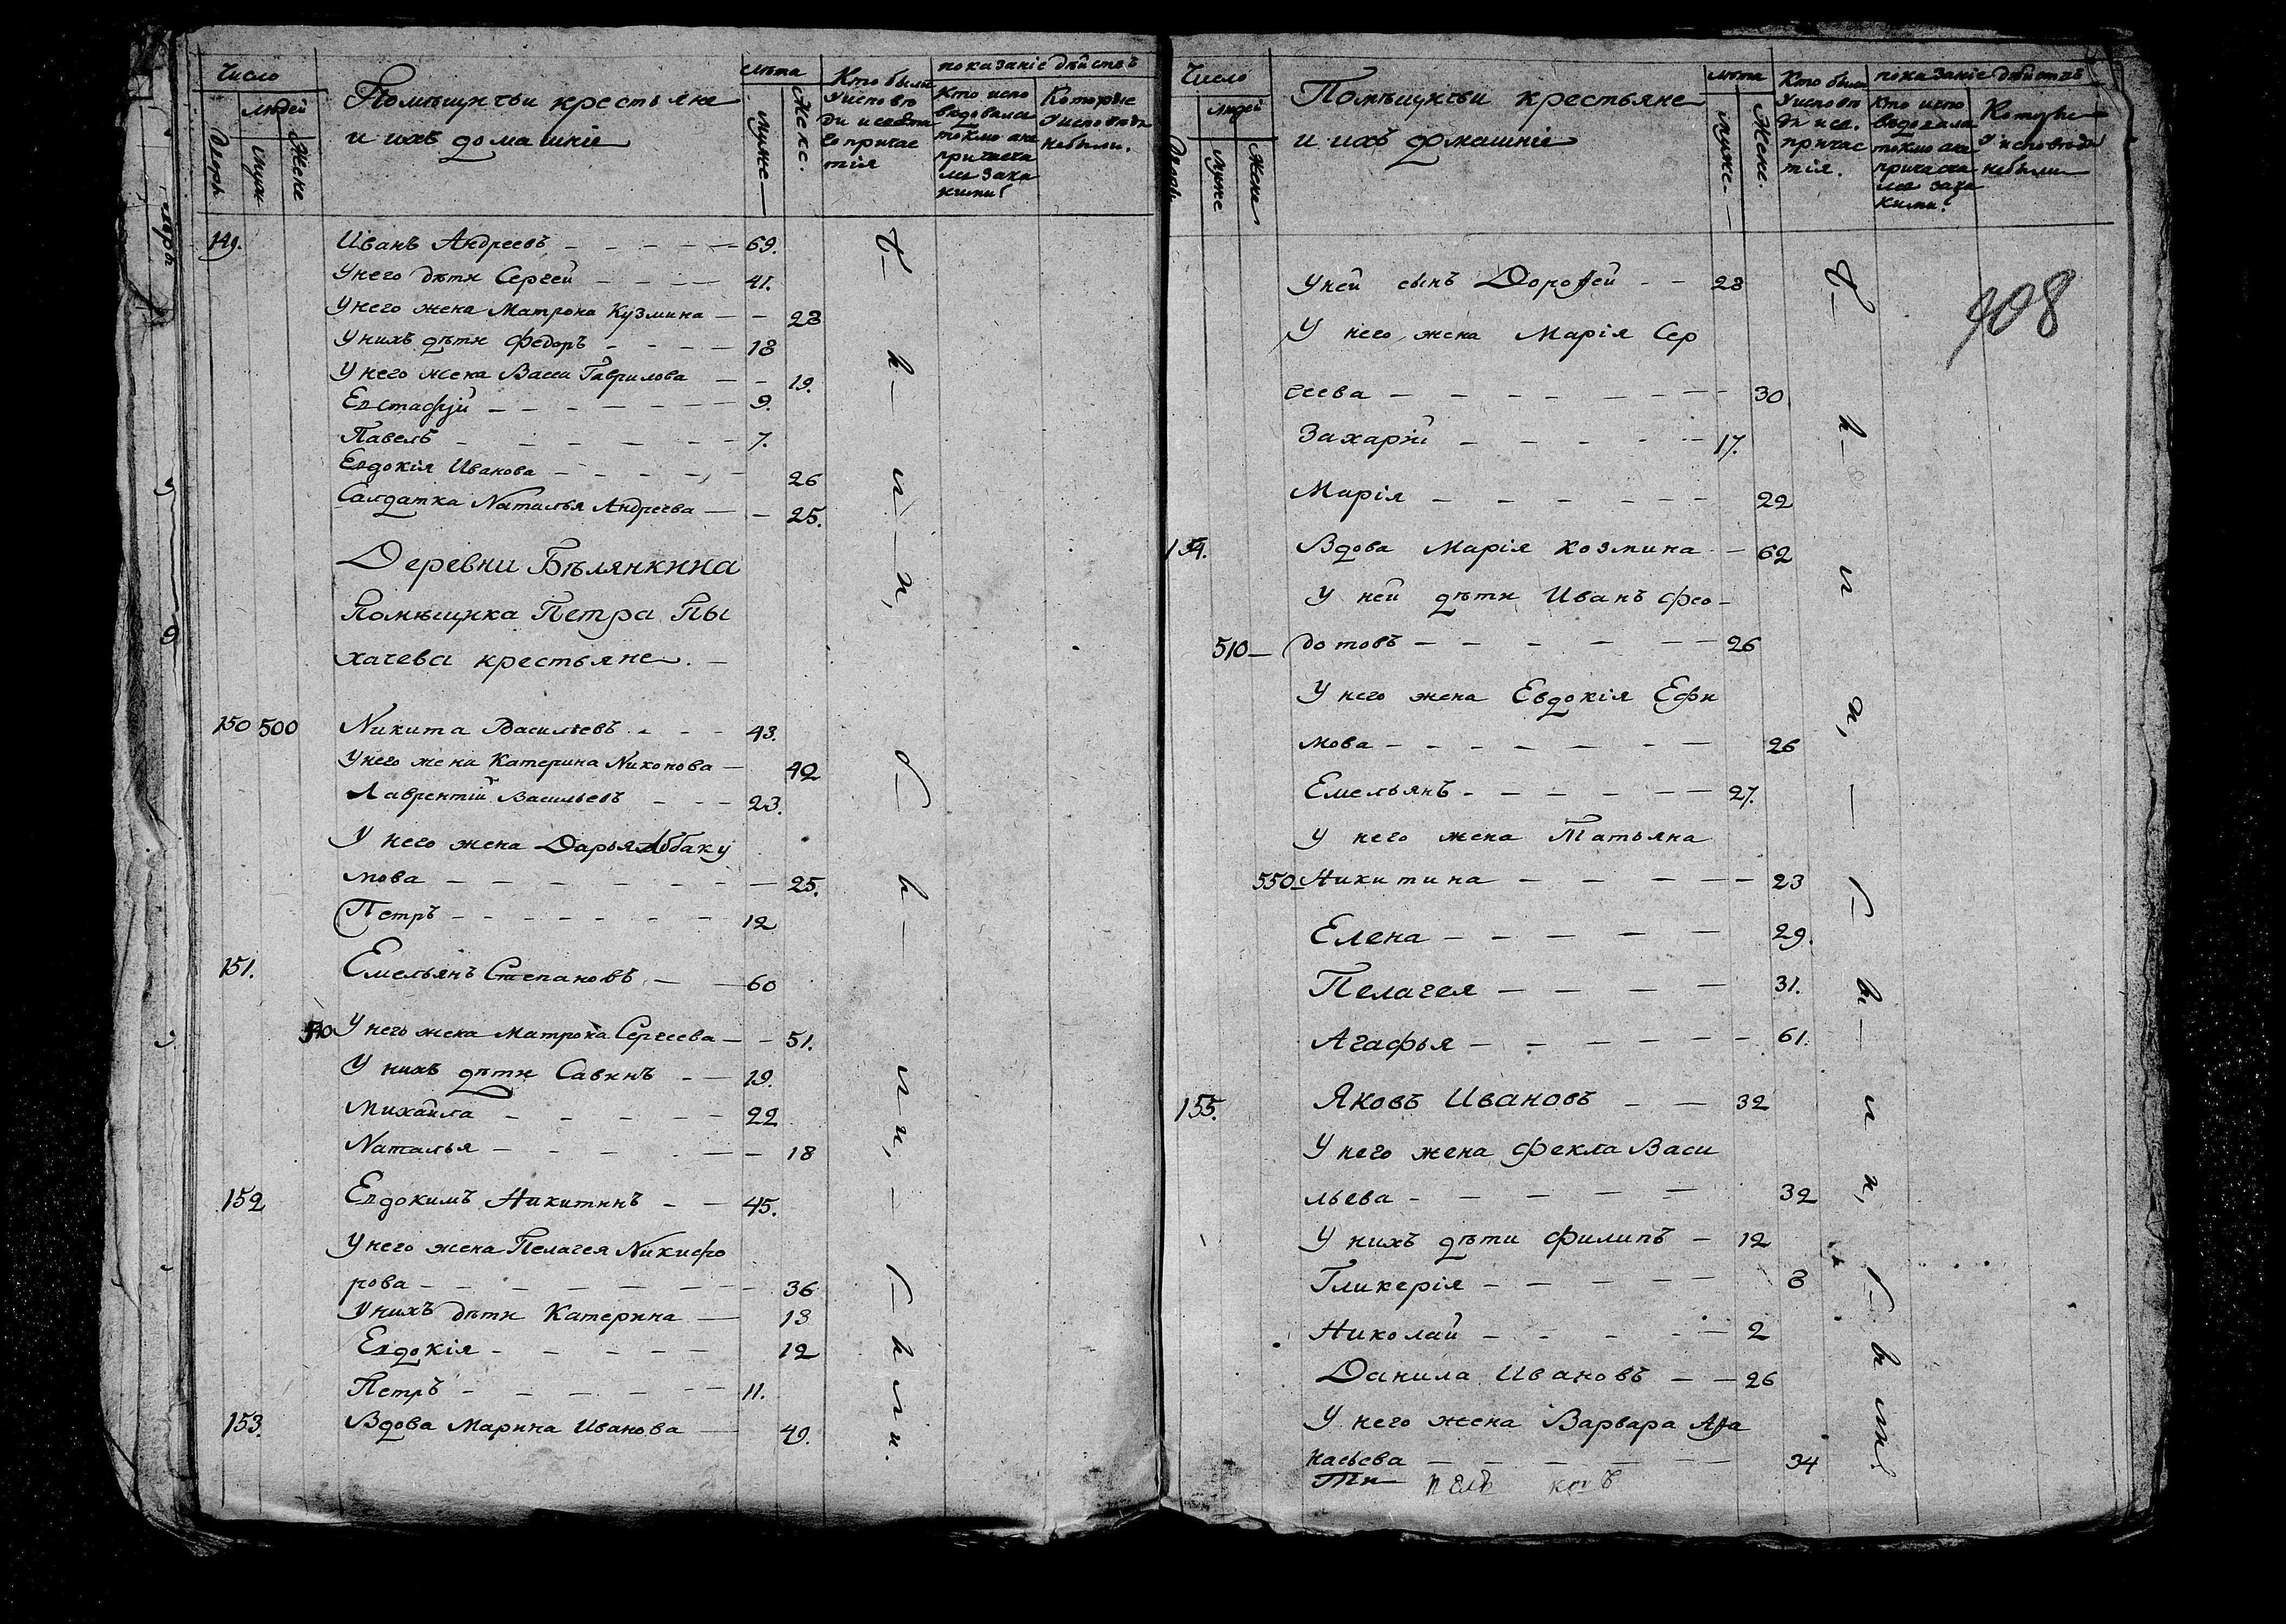 Число
людей
Дворы
мужи
Жене
Помѣщичьи крестьяне
и ихъ домашніе
лѣта
мужс—
Женс.
Кто были
У исповѣ
ди и свята
го причас
тія
показаніе дѣйствъ
Кто испо
ведовался
токмо ане
причаща
лся зака
кими?
Которые
У исповѣди
небыли.
149. Иванъ Андреевъ — 69.
У него дѣти Сергей — 41.
У него жена Матрона Кузмина — 28
У нихъ дѣти Федоръ — 18
У него жена Васса Гаврилова — 19.
Евстафій — 9.
Павелъ — 7.
Евдокія Иванова — 26
Салдатка Наталья Андреева — 25.
Деревни Бѣлянкина
Помѣщика Петра Пы
хачева крестьяне. —
150 500 Никита Васильевъ — 43.
У него жена Катерина Никонова — 42
Лаврентій Васильевъ — 23.
У него жена Дарья Аббаку
мова — 25.
Петръ — 12
151. Емельянъ Степановъ — 60
540 У него жена Матрона Сергеева — 51.
У нихъ дѣти Савинъ — 19.
Михайла — 22
Наталья — 18
152 Евдокимъ Никитинъ — 45.
У него жена Пелагея Никифо
рова — 36
У нихъ дѣти Катерина — 13
Евдокія — 12
Петръ — 11.
153. Вдова Марина Иванова — 49.
б— ы— л— и,
б— ы— л и,— б— ы л и.
Число
людей
Дворы
муже
Жене
Помѣщичьи крестьяне
и ихъ домашніе
лѣта
мужс.—
Женс.
Кто были
У исповѣ
ди и св.
причас
тія.
показаніе дѣйствъ
Кто испо
ведовался
токмо ане
причаща
лся зака
кими?
Которые
У исповѣди
небыли
908
У ней сынъ Дорофей — 28
У него жена Марія Сер
геева — 30
Захарій — 17.
Марія — 22
154. Вдова Марія Козмина — 62
У ней дѣти Иванъ Фео—
510— дотовъ — 26
У него жена Евдокія Ефи
мова — 26
Емельянъ — 27.
У него жена Татьяна
550— Никитина — 23
Елена — 29.
Пелагея — 31.
Агафья — 61.
155. Яковъ Ивановъ — 32
У него жена Фекла Васи
льева — 32
У нихъ дѣти Филипъ — 12
Гликерія — 8
Николай — 2
Данила Ивановъ — 26
У него жена Варвара Афа
насьева — 34
б— ы— л и,— б— ы— л и, б— ы ли.